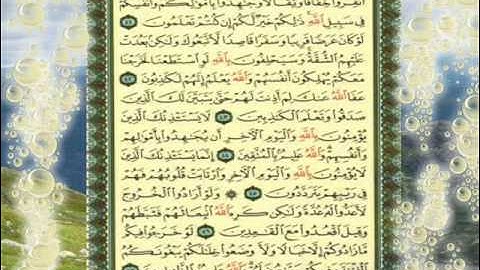 ٱنفِرُوا۟ خِفَافًا وَثِقَالًا وَجَٰهِدُوا۟ بِأَمْوَٰلِكُمْ وَأَنفُسِكُمْ
فِى سَبِيلِ ٱللَّهِ ذَٰلِكُمْ خَيْرٌ لَّكُمْ إِن كُنتُمْ تَعْلَمُونَ ٤١
لَوْ كَانَ عَرَضًا قَرِيبًا وَسَفَرًا قَاصِدًا لَّٱتَّبَعُوكَ وَلَٰكِنۢ بَعُدَتْ
عَلَيْهِمُ ٱلشُّقَّةُ وَسَيَحْلِفُونَ بِٱللَّهِ لَوِ ٱسْتَطَعْنَا لَخَرَجْنَا
مَعَكُمْ يُهْلِكُونَ أَنفُسَهُمْ وَٱللَّهُ يَعْلَمُ إِنَّهُمْ لَكَٰذِبُونَ ٤٢
عَفَا ٱللَّهُ عَنكَ لِمَ أَذِنتَ لَهُمْ حَتَّىٰ يَتَبَيَّنَ لَكَ ٱلَّذِينَ
صَدَقُوا۟ وَتَعْلَمَ ٱلْكَٰذِبِينَ ٤٣ لَا يَسْتَـْٔذِنُكَ ٱلَّذِينَ
يُؤْمِنُونَ بِٱللَّهِ وَٱلْيَوْمِ ٱلْـَٔاخِرِ أَن يُجَٰهِدُوا۟ بِأَمْوَٰلِهِمْ
وَأَنفُسِهِمْ وَٱللَّهُ عَلِيمٌۢ بِٱلْمُتَّقِينَ ٤٤ إِنَّمَا يَسْتَـْٔذِنُكَ ٱلَّذِينَ
لَا يُؤْمِنُونَ بِٱللَّهِ وَٱلْيَوْمِ ٱلْـَٔاخِرِ وَٱرْتَابَتْ قُلُوبُهُمْ فَهُمْ
فِى رَيْبِهِمْ يَتَرَدَّدُونَ ٤٥ وَلَوْ أَرَادُوا۟ ٱلْخُرُوجَ
لَأَعَدُّوا۟ لَهُۥ عُدَّةً وَلَٰكِن كَرِهَ ٱللَّهُ ٱنۢبِعَاثَهُمْ فَثَبَّطَهُمْ
وَقِيلَ ٱقْعُدُوا۟ مَعَ ٱلْقَٰعِدِينَ ٤٦ لَوْ خَرَجُوا۟ فِيكُم
مَّا زَادُوكُمْ إِلَّا خَبَالًا وَلَأَوْضَعُوا۟ خِلَٰلَكُمْ يَبْغُونَكُمُ